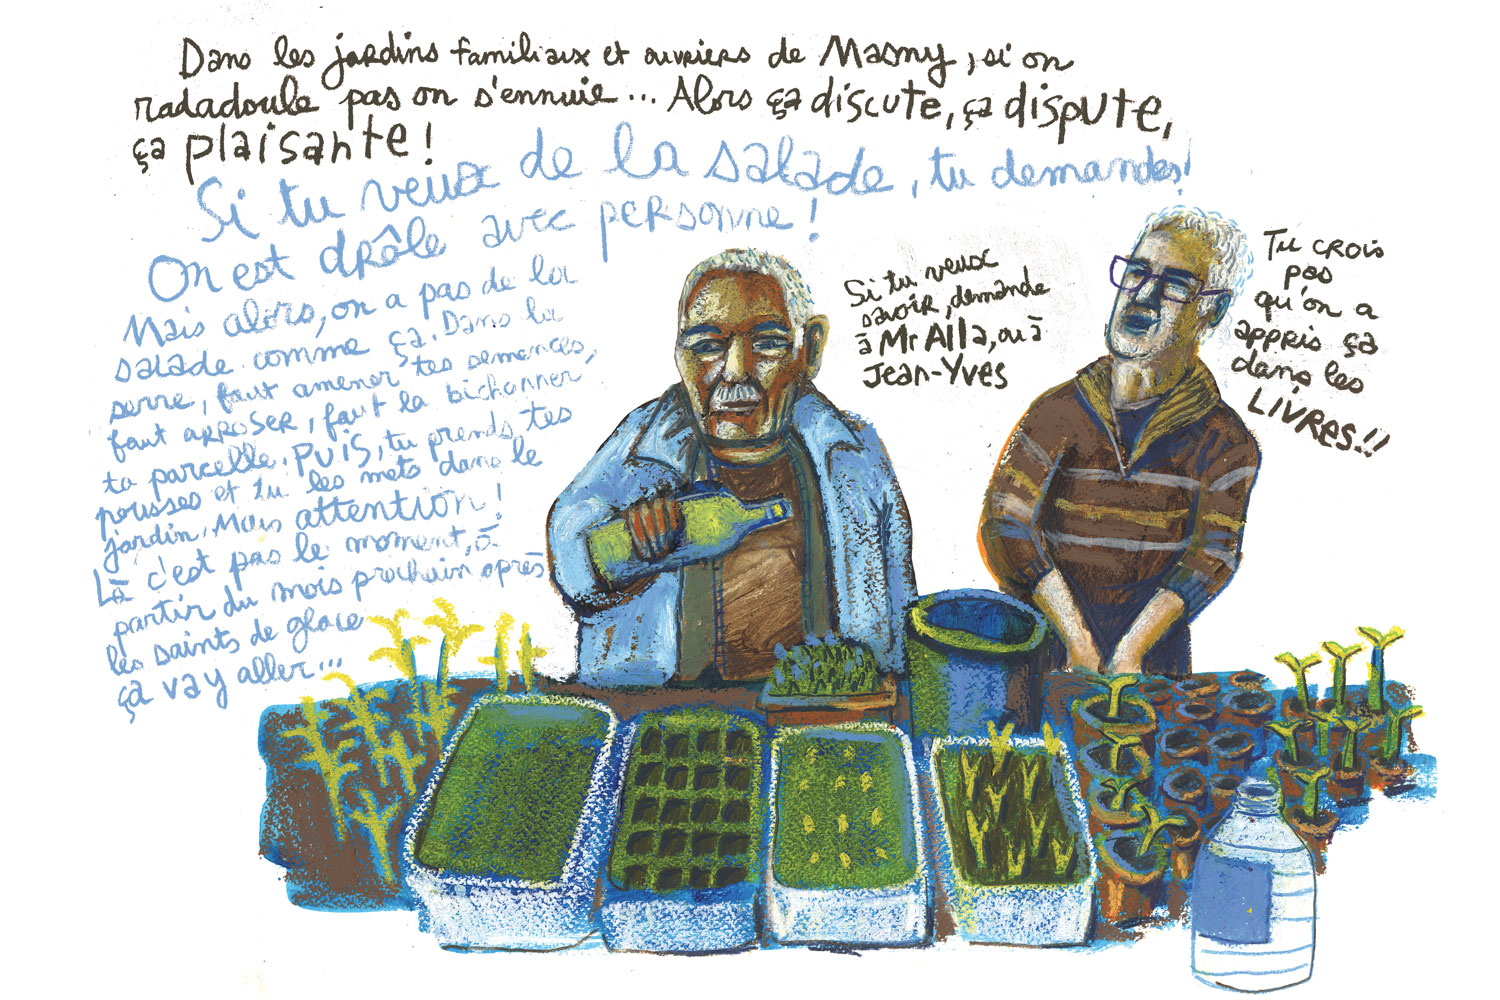 Dans les jardins familiaux et ouvriers de Masny, si on
radadoule pas on s'ennuie... Alors ça discute, ça dispute,
ça plaisante !
Si tu veux de la salade, tu demandes !
On est drôle avec personne !
Mais alors, on a pas de la
salade comme ça. Dans la
serre, faut amener tes semences,
faut arroser, faut la bichonner
ta parcelle. Puis, tu prends tes
pousses et tu les mets dans le
jardin. Mais attention !
Là c'est pas le moment, à
partir du mois prochain après
les saints de glace
ça va y aller...
Si tu veux
savoir, demande
à Mr Alla, ou à
Jean-Yves
Tu crois
pas
qu'on a
appris ça
dans les
LIVRES !!